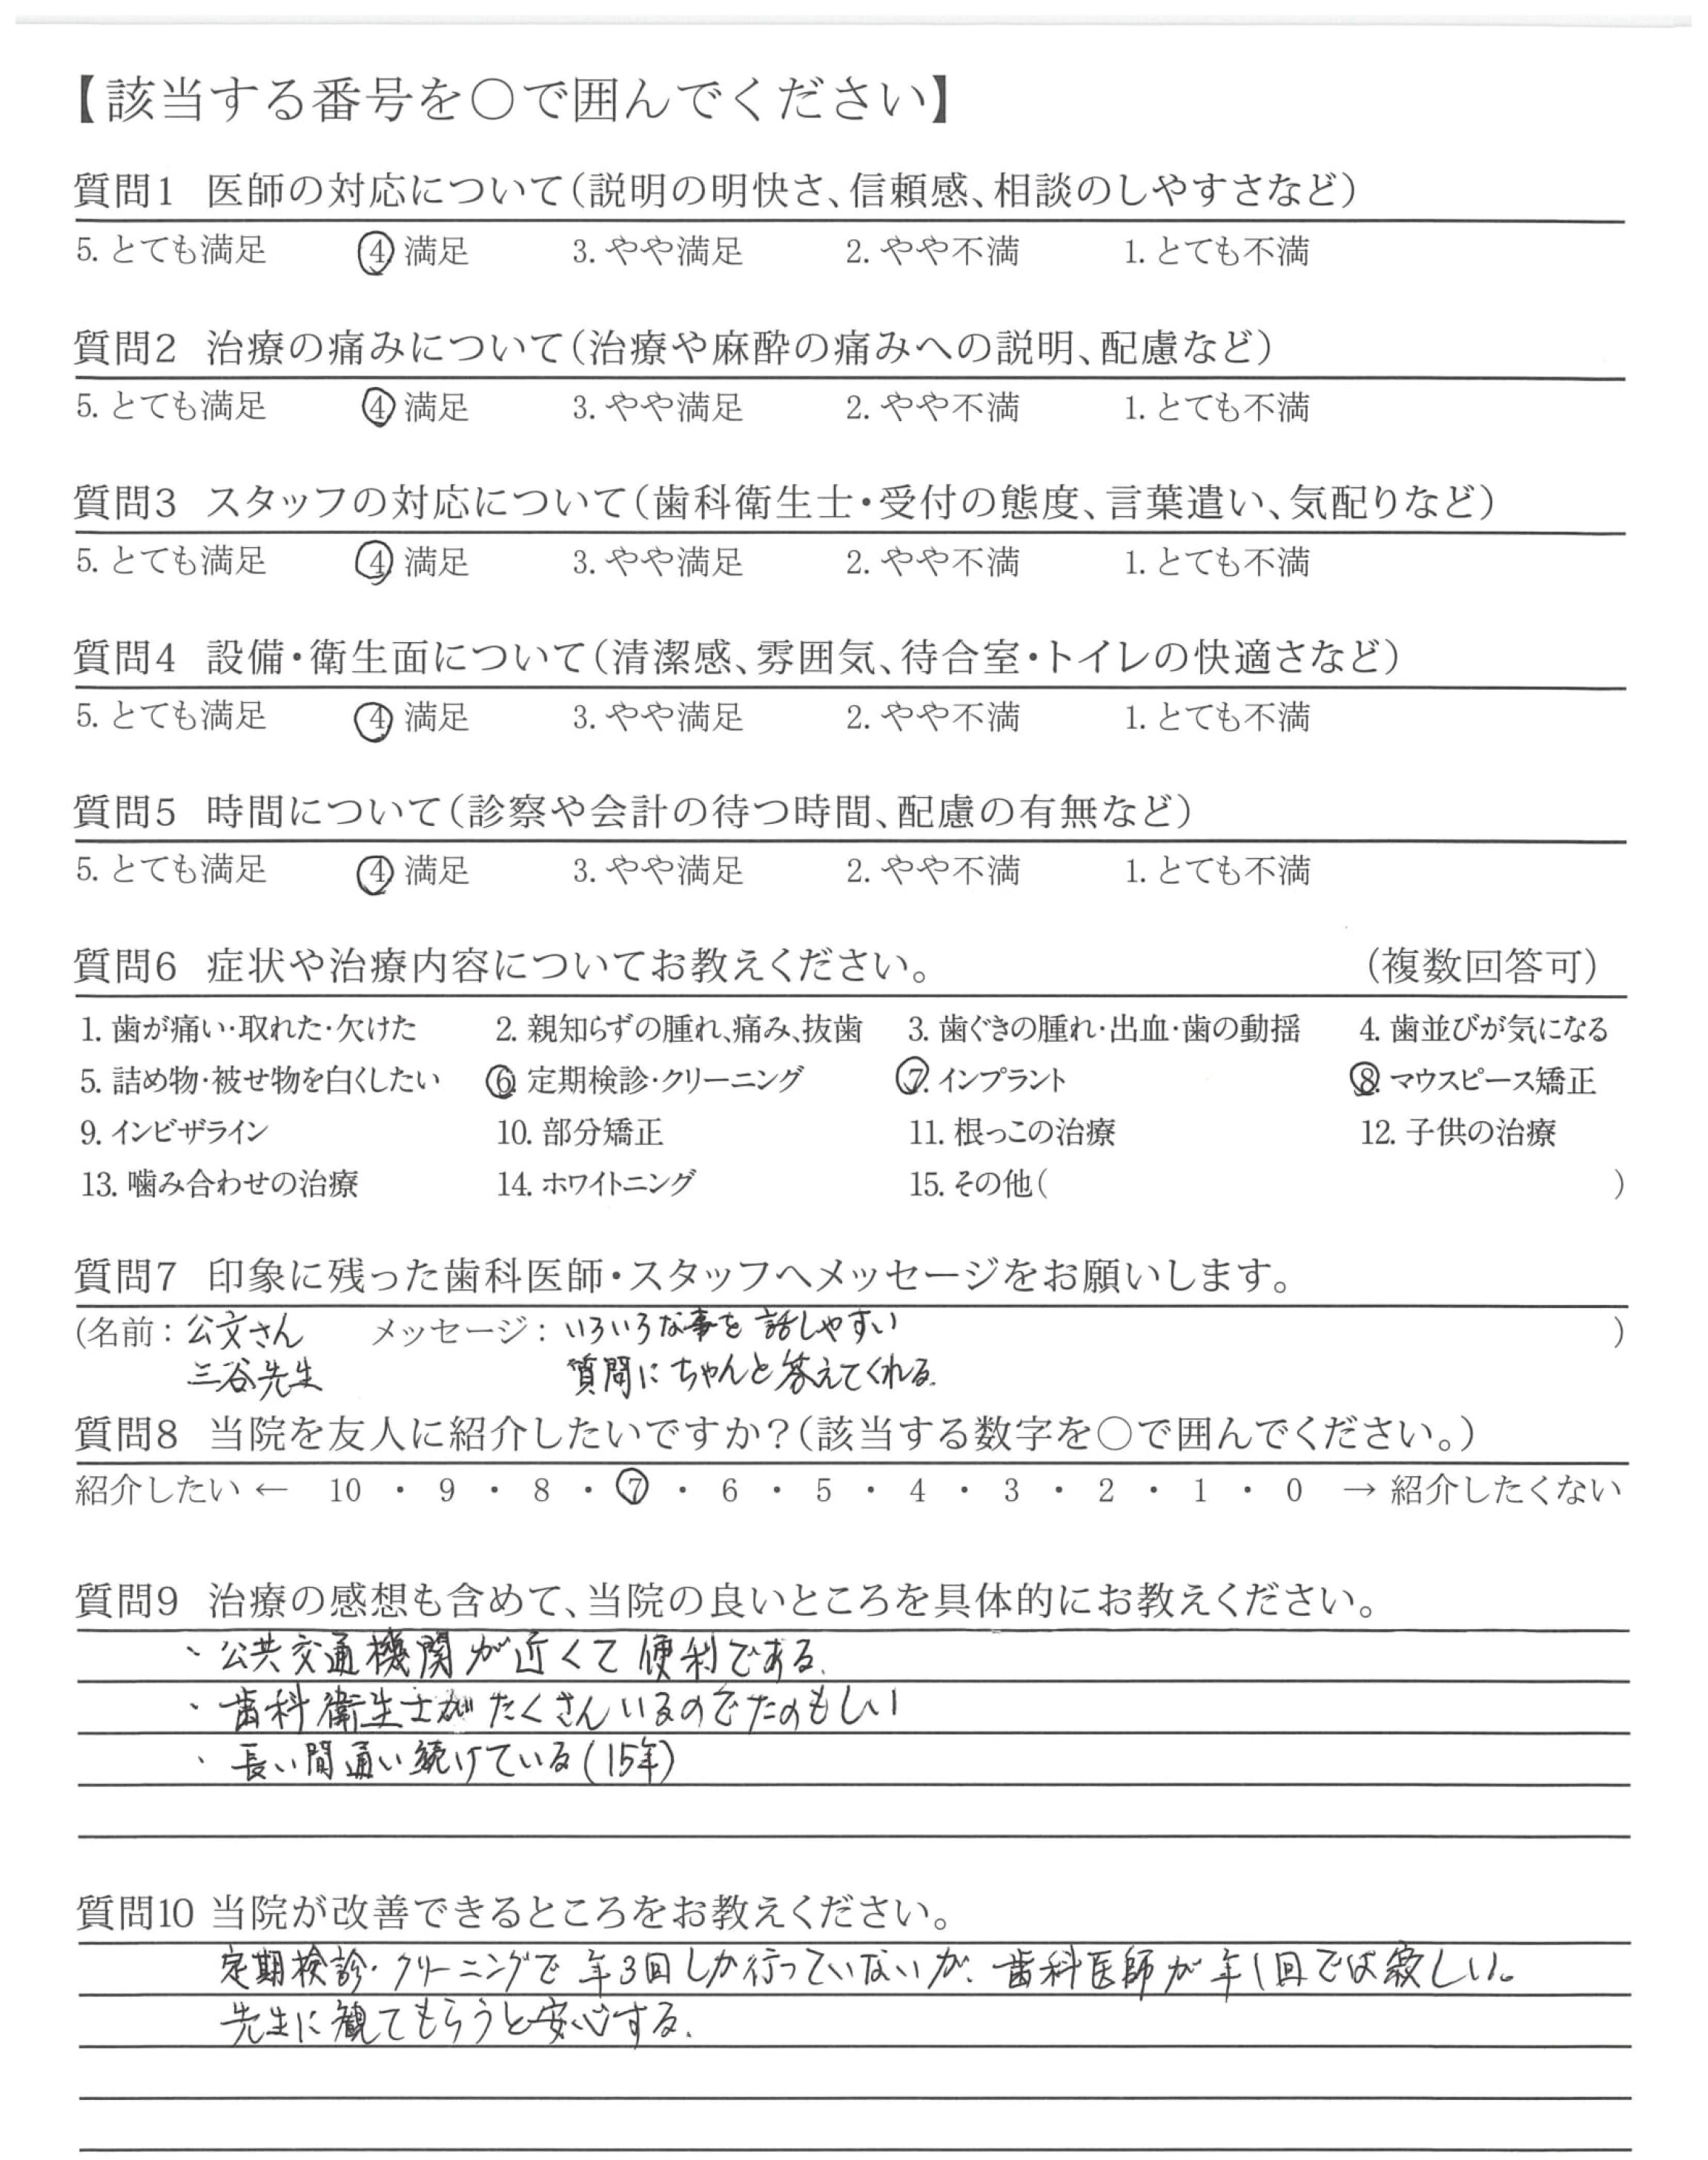 【該当する番号を○で囲んでください】
質問1 医師の対応について(説明の明快さ、信頼感、相談のしやすさなど)
5. とても満足 4. 満足 3. やや満足 2. やや不満 1. とても不満
質問2 治療の痛みについて(治療や麻酔の痛みへの説明、配慮など)
5. とても満足 4. 満足 3. やや満足 2. やや不満 1. とても不満
質問3 スタッフの対応について(歯科衛生士・受付の態度、言葉遣い、気配りなど)
5. とても満足 4. 満足 3. やや満足 2. やや不満 1. とても不満
質問4 設備・衛生面について(清潔感、雰囲気、待合室・トイレの快適さなど)
5. とても満足 4. 満足 3. やや満足 2. やや不満 1. とても不満
質問5 時間について(診察や会計の待つ時間、配慮の有無など)
5. とても満足 4. 満足 3. やや満足 2. やや不満 1. とても不満
質問6 症状や治療内容についてお教えください。 (複数回答可)
1. 歯が痛い・取れた・欠けた 2. 親知らずの腫れ、痛み、抜歯 3. 歯ぐきの腫れ・出血・歯の動揺 4. 歯並びが気になる
5. 詰め物・被せ物を白くしたい 6. 定期検診・クリーニング 7. インプラント 8. マウスピース矯正
9. インビザライン 10. 部分矯正 11. 根っこの治療 12. 子供の治療
13. 噛み合わせの治療 14. ホワイトニング 15. その他( )
質問7 印象に残った歯科医師・スタッフへメッセージをお願いします。
(名前：公文さん メッセージ：いろいろな事を話しやすい )
三谷先生 質問にちゃんと答えてくれる。
質問8 当院を友人に紹介したいですか？(該当する数字を○で囲んでください。)
紹介したい ← 10 ・ 9 ・ 8 ・ 7 ・ 6 ・ 5 ・ 4 ・ 3 ・ 2 ・ 1 ・ 0 → 紹介したくない
質問9 治療の感想も含めて、当院の良いところを具体的にお教えください。
・公共交通機関が近くて便利である。
・歯科衛生士がたくさんいるのでたのもしい
・長い間通い続けている(15年)
質問10 当院が改善できるところをお教えください。
定期検診・クリーニングで年3回しか行っていないが、歯科医師が年1回では寂しい。
先生に観てもらうと安心する。